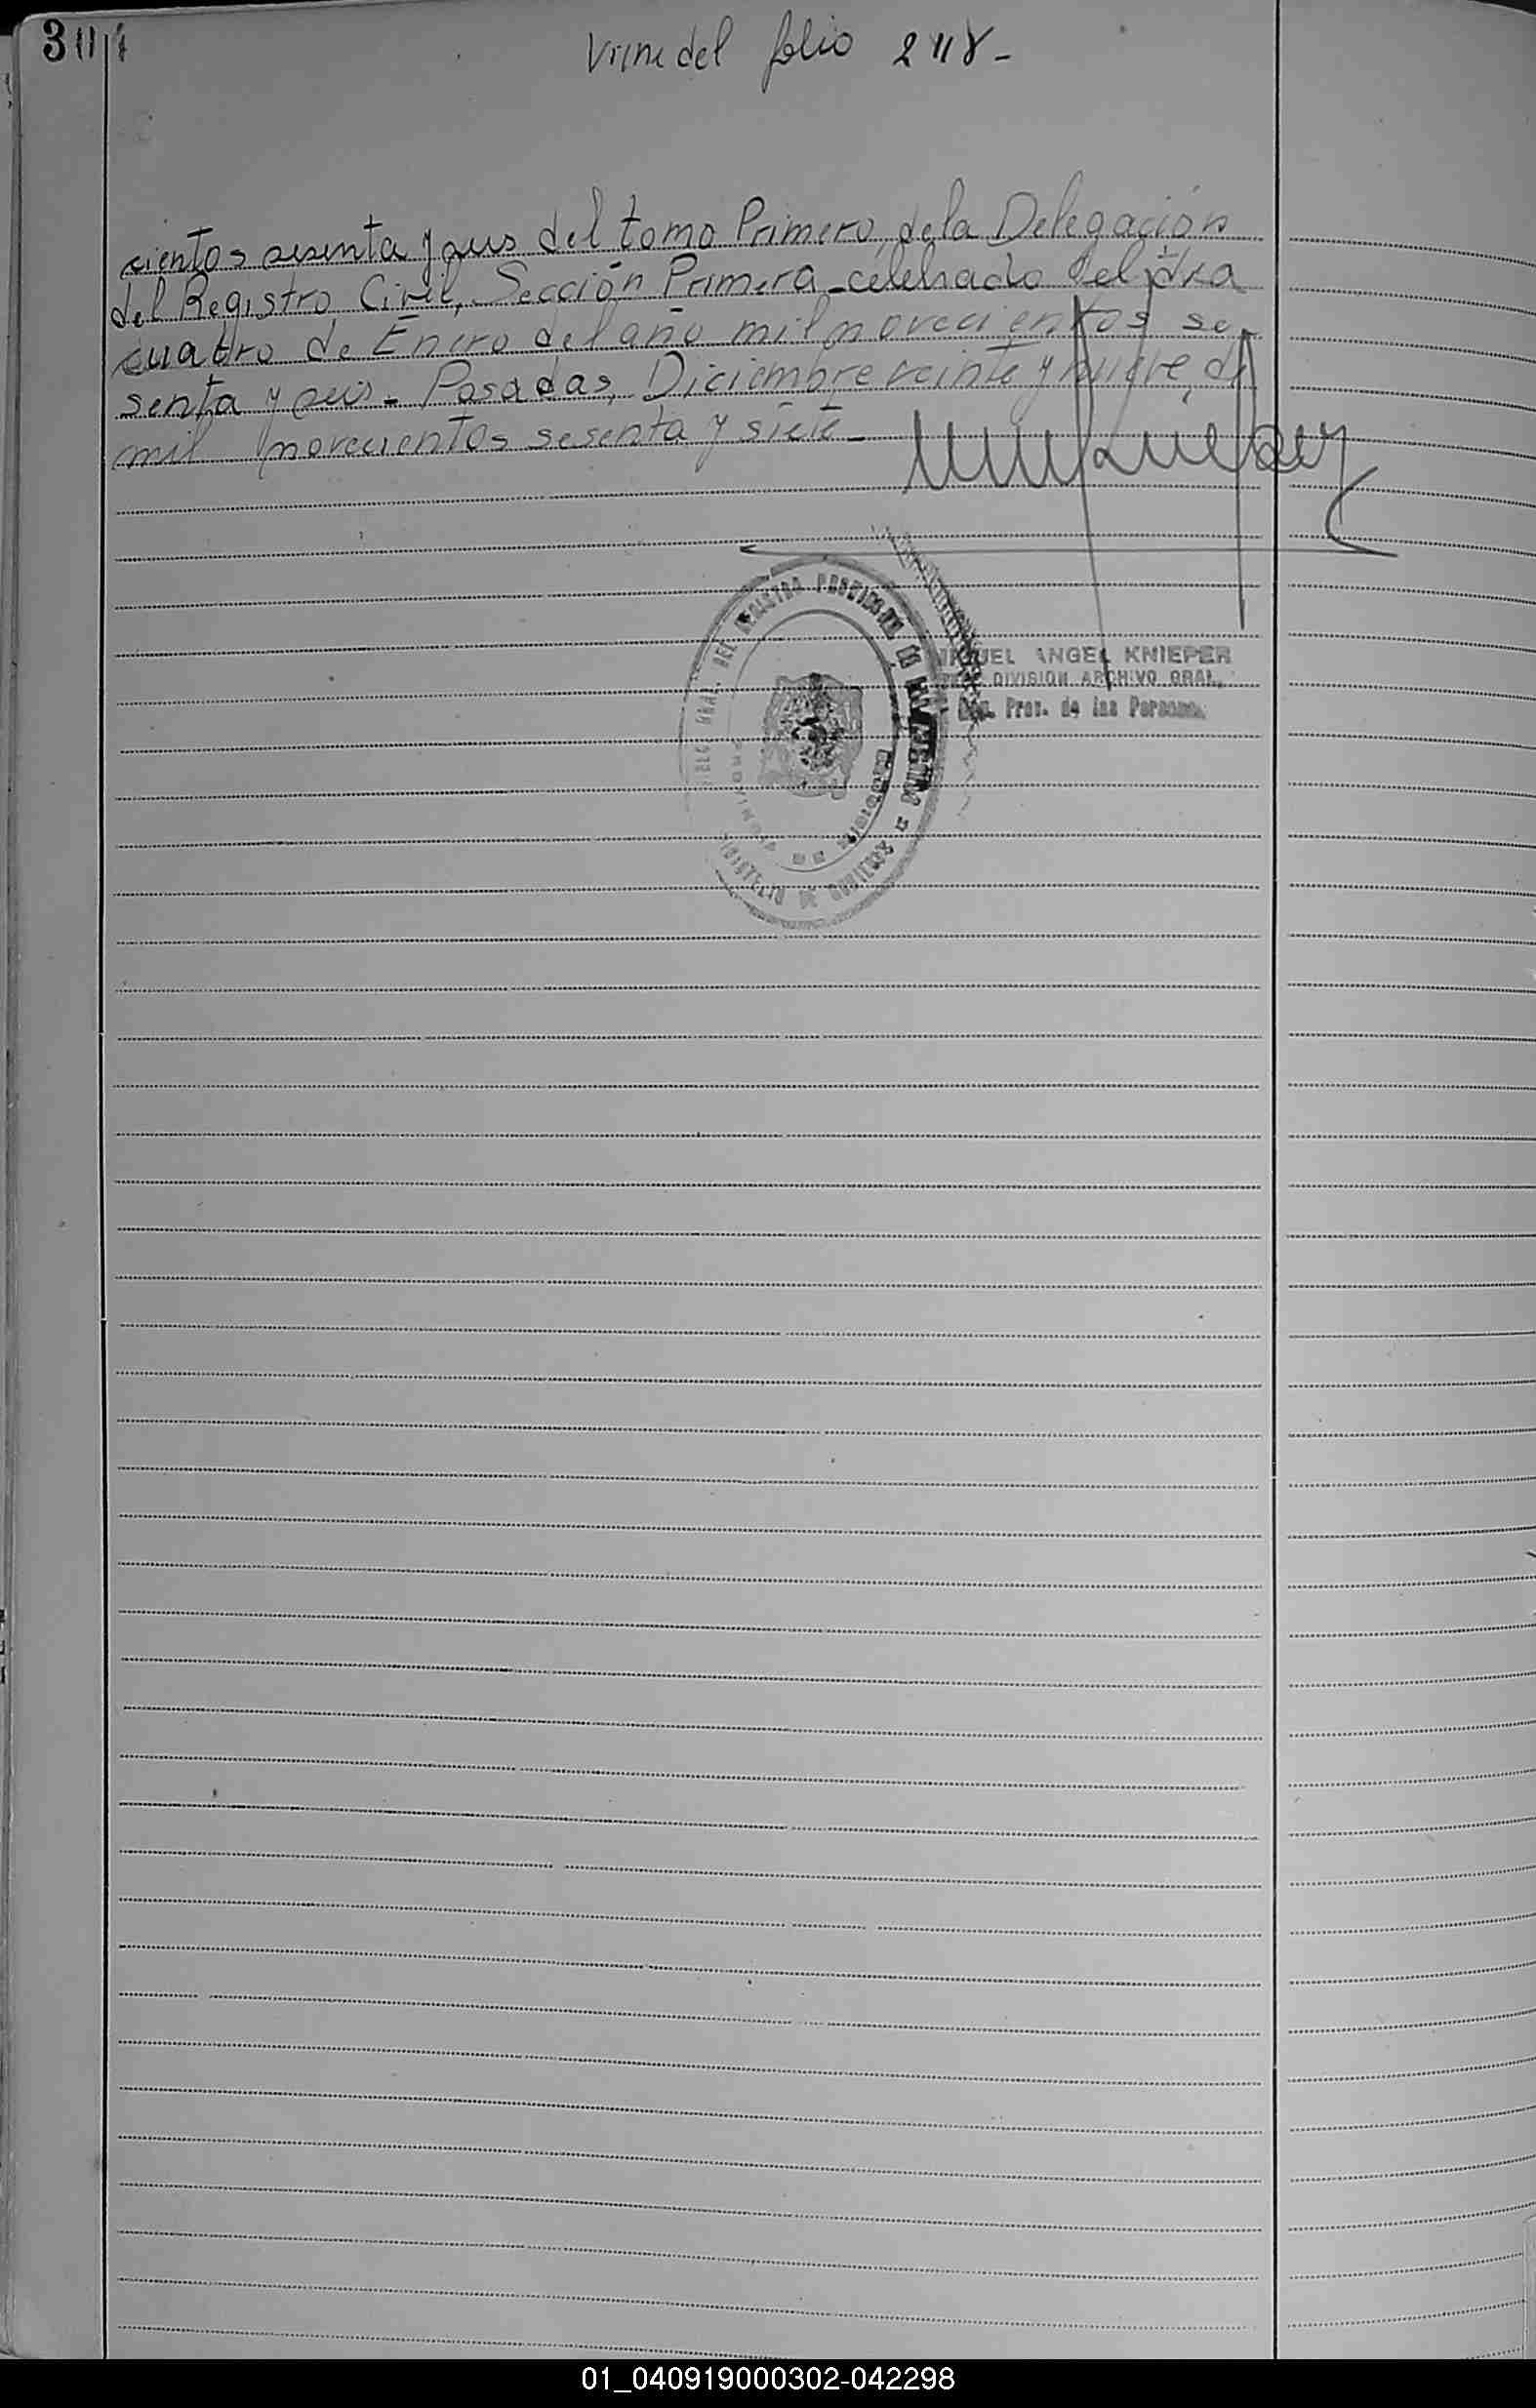 Viene del folio 2118-
cientos sesenta y seis del tomo Primero, de la Delegación
del Registro Civil, Sección Primera - celebrado del dia
cuatro de Enero del año mil novecientos se-
senta y seis - Posadas, Diciembre veinte y nueve, de
mil novecientos sesenta y siete -
MIGUEL ANGEL KNIEPER
DIVISION ARCHIVO GRAL.
Prov. de las Personas
GRAL. DEL REGISTRO PROVINCIAL DE LAS PERSONAS
MINISTERIO DE GOBIERNO
PROVINCIA DE MISIONES
01_040919000302-042298